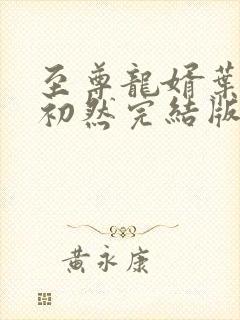 至尊龍婿葉
初然完結版
黃永康